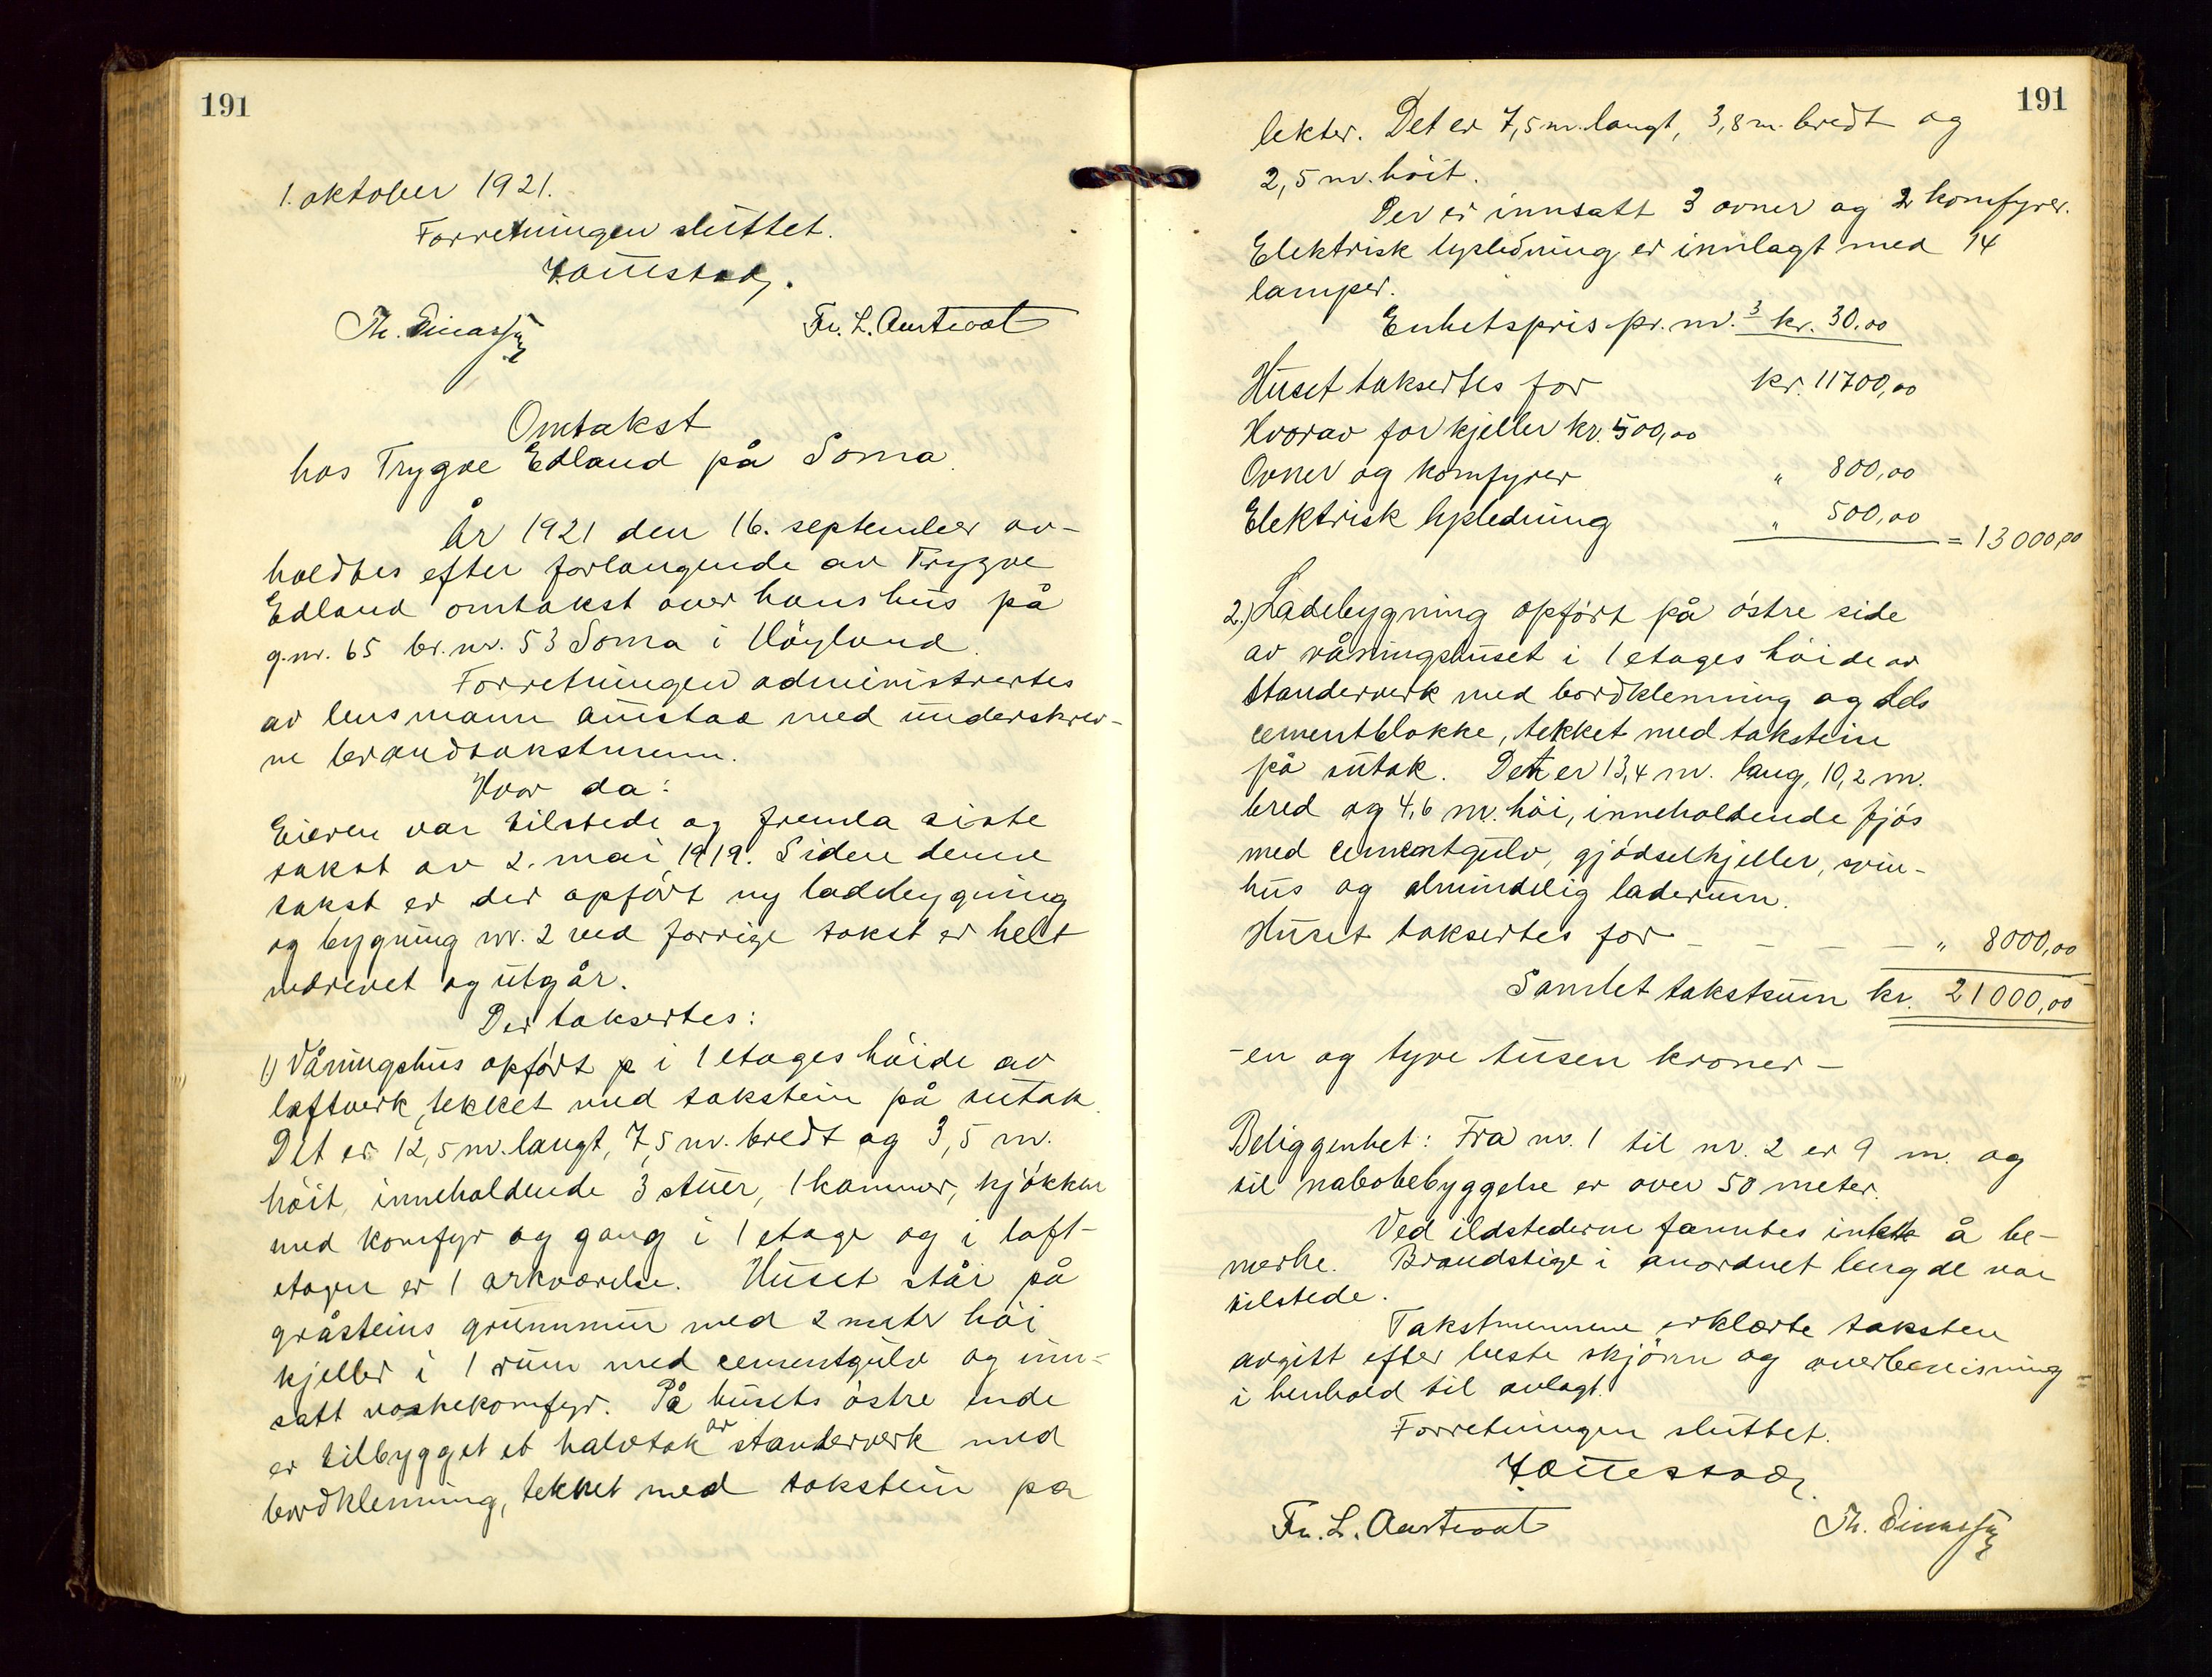 191
1. oktober 1921.
Forretningen sluttet.
Fr. L. Austvoll
Omtakst
hos Trygve Edland på Soma.
År 1921 den 16. september av-
holdtes efter forlangende av Trygve
Edland omtakst over hans hus på
g.nr. 65 br.nr. 53 Soma i Höyland.
Forretningen administrertes
av lensmann Aurstad med underskrev-
ne brandtakstmenn.
Hvor da:
Eieren var tilstede og fremla siste
takst av 2. mai 1919. Siden denne
takst er der opfört ny ladebygning
og bygning nr. 2 ved forrige takst er helt
nedrevet og utgår.
Der taksertes:
1) Våningshus opfört p i 1 etages höide av
laftverk, tekket med takstein på sutak.
Det er 12,5 m. langt, 7,5 m. bredt og 3,5 m.
höit, inneholdende 3 stuer, 1 kammer, kjökken
med komfyr og gang i 1 etage og i loft-
etagen er 1 arkværelse. Huset står på
gråsteins grunnmur med 2 meter höi
kjeller i 1 rum med cementgulv og inn-
satt vaskekomfyr. På husets östre ende
er tilbygget et halvtak av standerverk med
bordklenning, tekket med takstein på
191
lekter. Det er 7,5 m. langt, 3,8 m. bredt og
2,5 m. höit.
Der er innsatt 3 ovner og 2 komfyrer.
Elektrisk lysledning er innlagt med 14
lamper.
Enhetspris pr. m.³ kr. 30,00
Huset taksertes for kr. 11700,00
Hvorav for kjeller kr. 500,00
Ovner og komfyrer " 800,00
Elektrisk lysledning " 500,00 = 13000,00
2.) Ladebygning opfört på östre side
av våningshuset i 1 etages höide av
standerverk med bordklenning og dels
cementblokke, tekket med takstein
på sutak. Den er 13,4 m. lang, 10,2 m.
bred og 4,6 m. höi, inneholdende fjös
med cementgulv, gjödselkjeller, svin-
hus og almindelig laderum.
Huset taksertes for - - - - " 8000,00
Samlet takstsum kr. 21000,00
- en og tyve tusen kroner -
Beliggenhet: Fra nr. 1 til nr. 2 er 9 m. og
til nabobebyggelse er over 50 meter.
Ved ildstederne fanntes intet å be-
merke. Brandstige i anordnet lengde var
tilstede.
Takstmennene erklærte taksten
avgitt efter beste skjönn og overbevisning
i henhold til avlagt.
Forretningen sluttet.
Fr. L. Austvoll